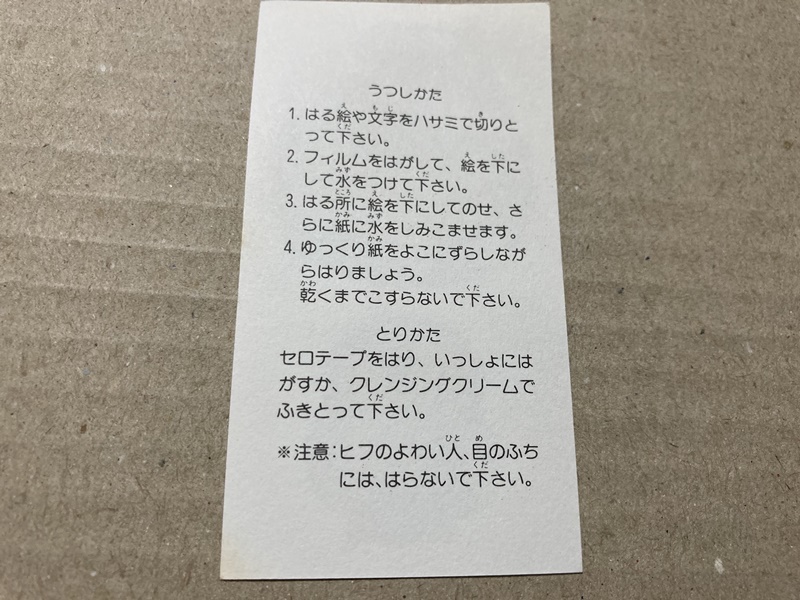 うつしかた
1. はる絵や文字をハサミで切りと
って下さい。
2. フィルムをはがして、絵を下に
して水をつけて下さい。
3. はる所に絵を下にしてのせ、さ
らに紙に水をしみこませます。
4. ゆっくり紙をよこにずらしなが
らはりましょう。
乾くまでこすらないで下さい。
とりかた
セロテープをはり、いっしょには
がすか、クレンジングクリームで
ふきとって下さい。
※注意：ヒフのよわい人、目のふち
には、はらないで下さい。